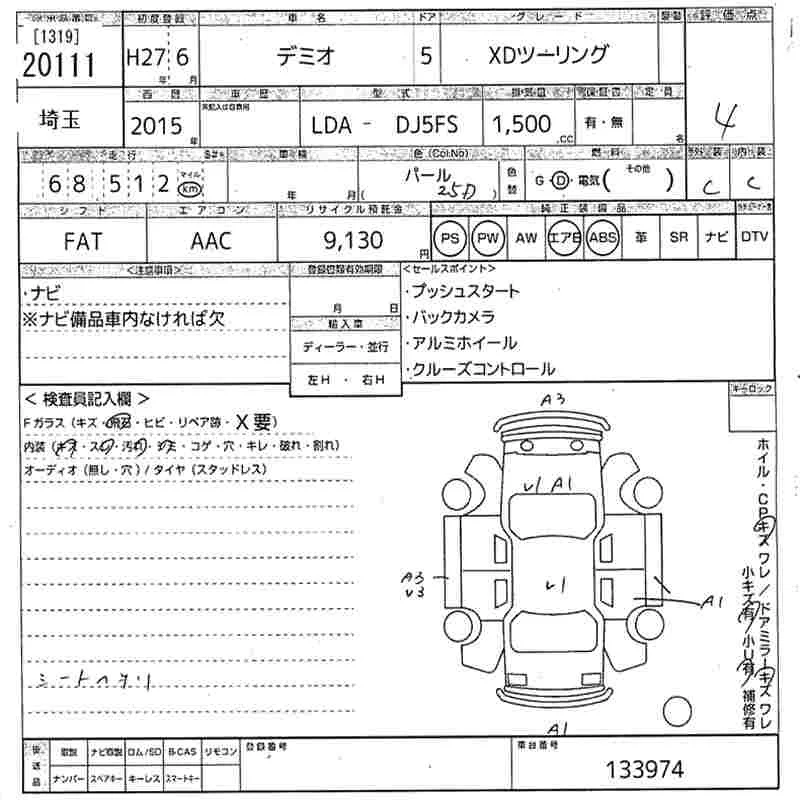 [1319]
初度登録 車名 ドア グレード 装備 評価点
20111 H27 6 デミオ 5 XDツーリング 4
年 月
埼玉
西暦 車歴 型式 排気量 保証書 定員
2015年 LDA - DJ5FS 1,500.CC 有・無 名
走行 車検 色(Col.No) 燃料 外装 内装
68512 マイル km 年 月 パール ( 25D ) 色替 G・D・電気( その他 ) C C
シフト エアコン リサイクル預託金 純正装備品
FAT AAC 9,130円 PS PW AW エアB ABS 革 SR ナビ DTV
<注意事項> 登録書類有効期限 <セールスポイント>
・ナビ
※ナビ備品車内なければ欠
月 日
輸入車
ディーラー・並行
左H ・ 右H
・プッシュスタート
・バックカメラ
・アルミホイール
・クルーズコントロール
<検査員記入欄>
Fガラス(キズ・飛石・ヒビ・リペア跡・X要)
内装(キズ・スレ・汚れ・シミ・コゲ・穴・キレ・破れ・割れ)
オーディオ(無し・穴)/タイヤ(スタッドレス)
シートヘタリ
キーロック
A3
v1 A1
v1
A3
v3
A1
A1
ホイル・CPキズワレ/ドアミラーキズワレ
小キズ有/小U有/補修有
後送品 取説 ナビ取説 ロム/SD B-CAS リモコン
ナンバー スペアキー キーレス スマートキー
登録番号
車台番号
133974